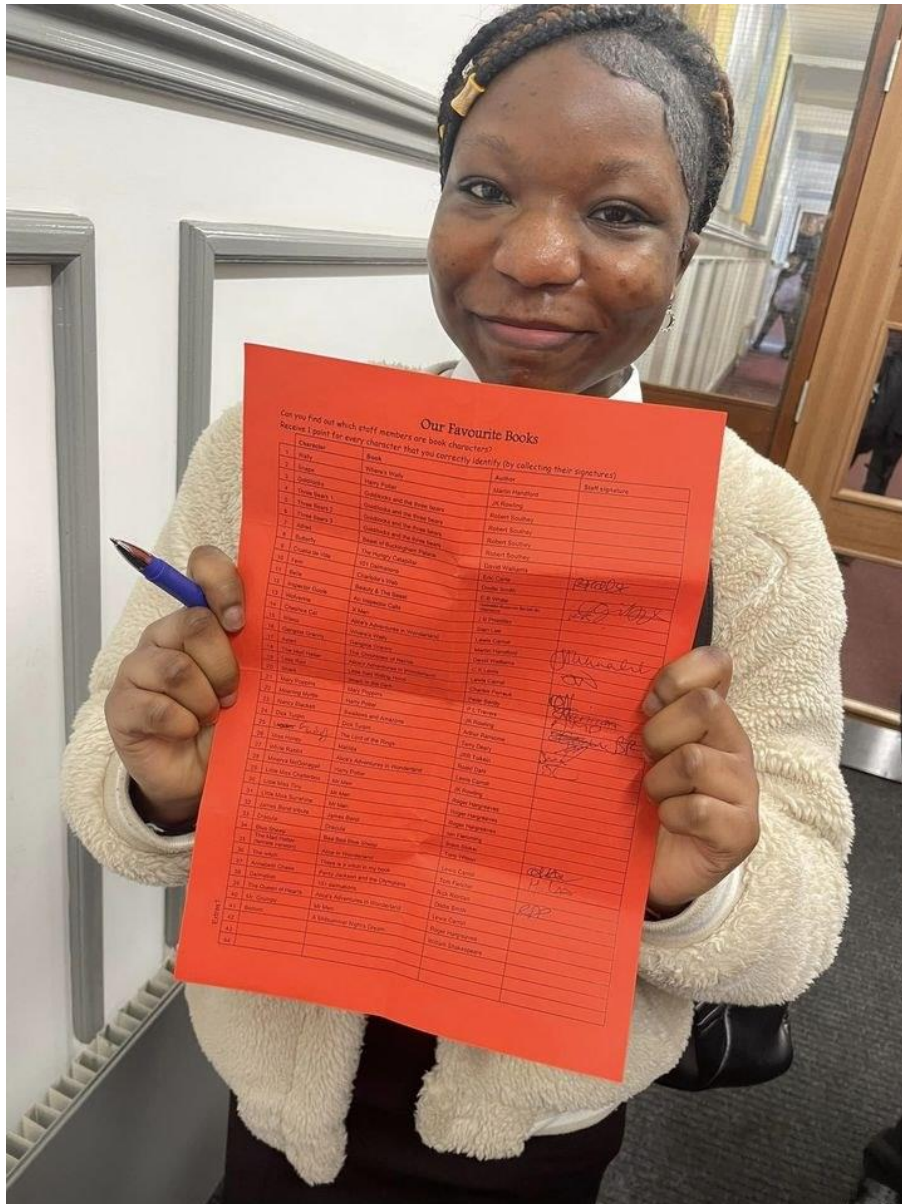 Our Favourite Books
Can you find out which staff members are book characters?
Receive 1 point for every character that you correctly identify (by collecting their signatures)
Character Book Author Staff signature
1 Wally Where's Wally Martin Handford
2 Snape Harry Potter JK Rowling
3 Goldilocks Goldilocks and the three bears Robert Southey
4 Three Bears 1 Goldilocks and the three bears Robert Southey
5 Three Bears 2 Goldilocks and the three bears Robert Southey
6 Three Bears 3 Goldilocks and the three bears Robert Southey
7 Beast of Buckingham Palace David Walliams
8 Butterfly The Hungry Catapillar Eric Carle
9 Cruella de Ville 101 Dalmatians Dodie Smith
10 Fern Charlotte's Web E B White
11 Belle Beauty & The Beast
12 Inspector Goole An Inspector Calls J B Priestley
13 Wolverine X Men Stan Lee
14 Cheshire Cat Alice's Adventures in Wonderland Lewis Carrol
15 Where's Wally Martin Handford
16 Gangsta Granny Gangsta Granny David Walliams
17 Aslan The Chronicles of Narnia C S Lewis
18 The Mad Hatter Alice's Adventures in Wonderland Lewis Carrol
19 Little Red Little Red Riding Hood Charles Perrault
20 Shark Shark in the Park
21 Mary Poppins Mary Poppins P L Travers
22 Moaning Myrtle Harry Potter JK Rowling
23 Nancy Blackett Swallows and Amazons Arthur Ransome
24 Dick Turpin Dick Turpin Terry Deary
25 The Lord of the Rings JRR Tolkein
26 Miss Honey Matilda Roald Dahl
27 White Rabbit Alice's Adventures in Wonderland Lewis Carrol
28 Minerva McGonagall Harry Potter JK Rowling
29 Little Miss Chatterbox Mr Men Roger Hargreaves
30 Little Miss Tiny Mr Men Roger Hargreaves
31 Little Miss Sunshine Mr Men Roger Hargreaves
32 James Bond James Bond Ian Flemming
33 Dracula Dracula Bram Stoker
34 Blue Sheep Baa Baa Blue Sheep
35 The Mad Hatter (female version) Alice in Wonderland Lewis Carrol
36 The witch There is a witch in my book Tom Fletcher
37 Annabeth Chase Percy Jackson and the Olympians Rick Riordan
38 Dalmatian 101 dalmatians Dodie Smith
39 The Queen of Hearts Alice's Adventures in Wonderland Lewis Carrol
40 Mr. Grumpy Mr Men Roger Hargreaves
41 Bottom A Midsummer Night's Dream William Shakespeare
42
43
44